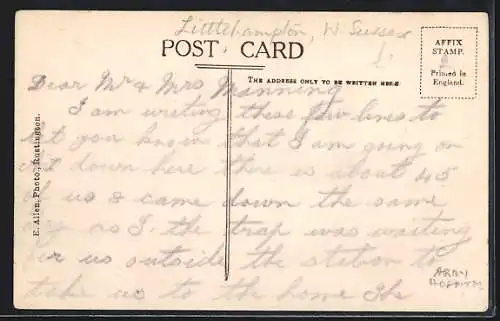 Littlehampton, W. Sussex
POST CARD
AFFIX
STAMP.
Printed in
England.
THE ADDRESS ONLY TO BE WRITTEN HERE
Dear Mr & Mrs Manning
I am writing these few lines to
let you know that I am going on
down here there is about 45
of us & came down the same
day as I. the trap was waiting
for us outside the station to
take us to the home The
E. Allen, Photo., Rustington.
ARMY
HOSPITAL